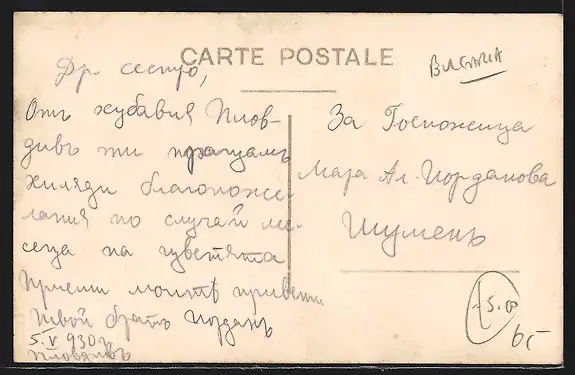 CARTE POSTALE
BULGARIA
Др. сестро,
Отъ хубавия Плов-
дивъ ти пращамъ
хиляди благопоже-
лания по случай ме-
сеца на цветята
Приеми моитѣ привети
твой братъ Йорданъ
5.V 930 г.
Пловдивъ
За Госпожица
Мара Ал. Йорданова
Шуменъ
65